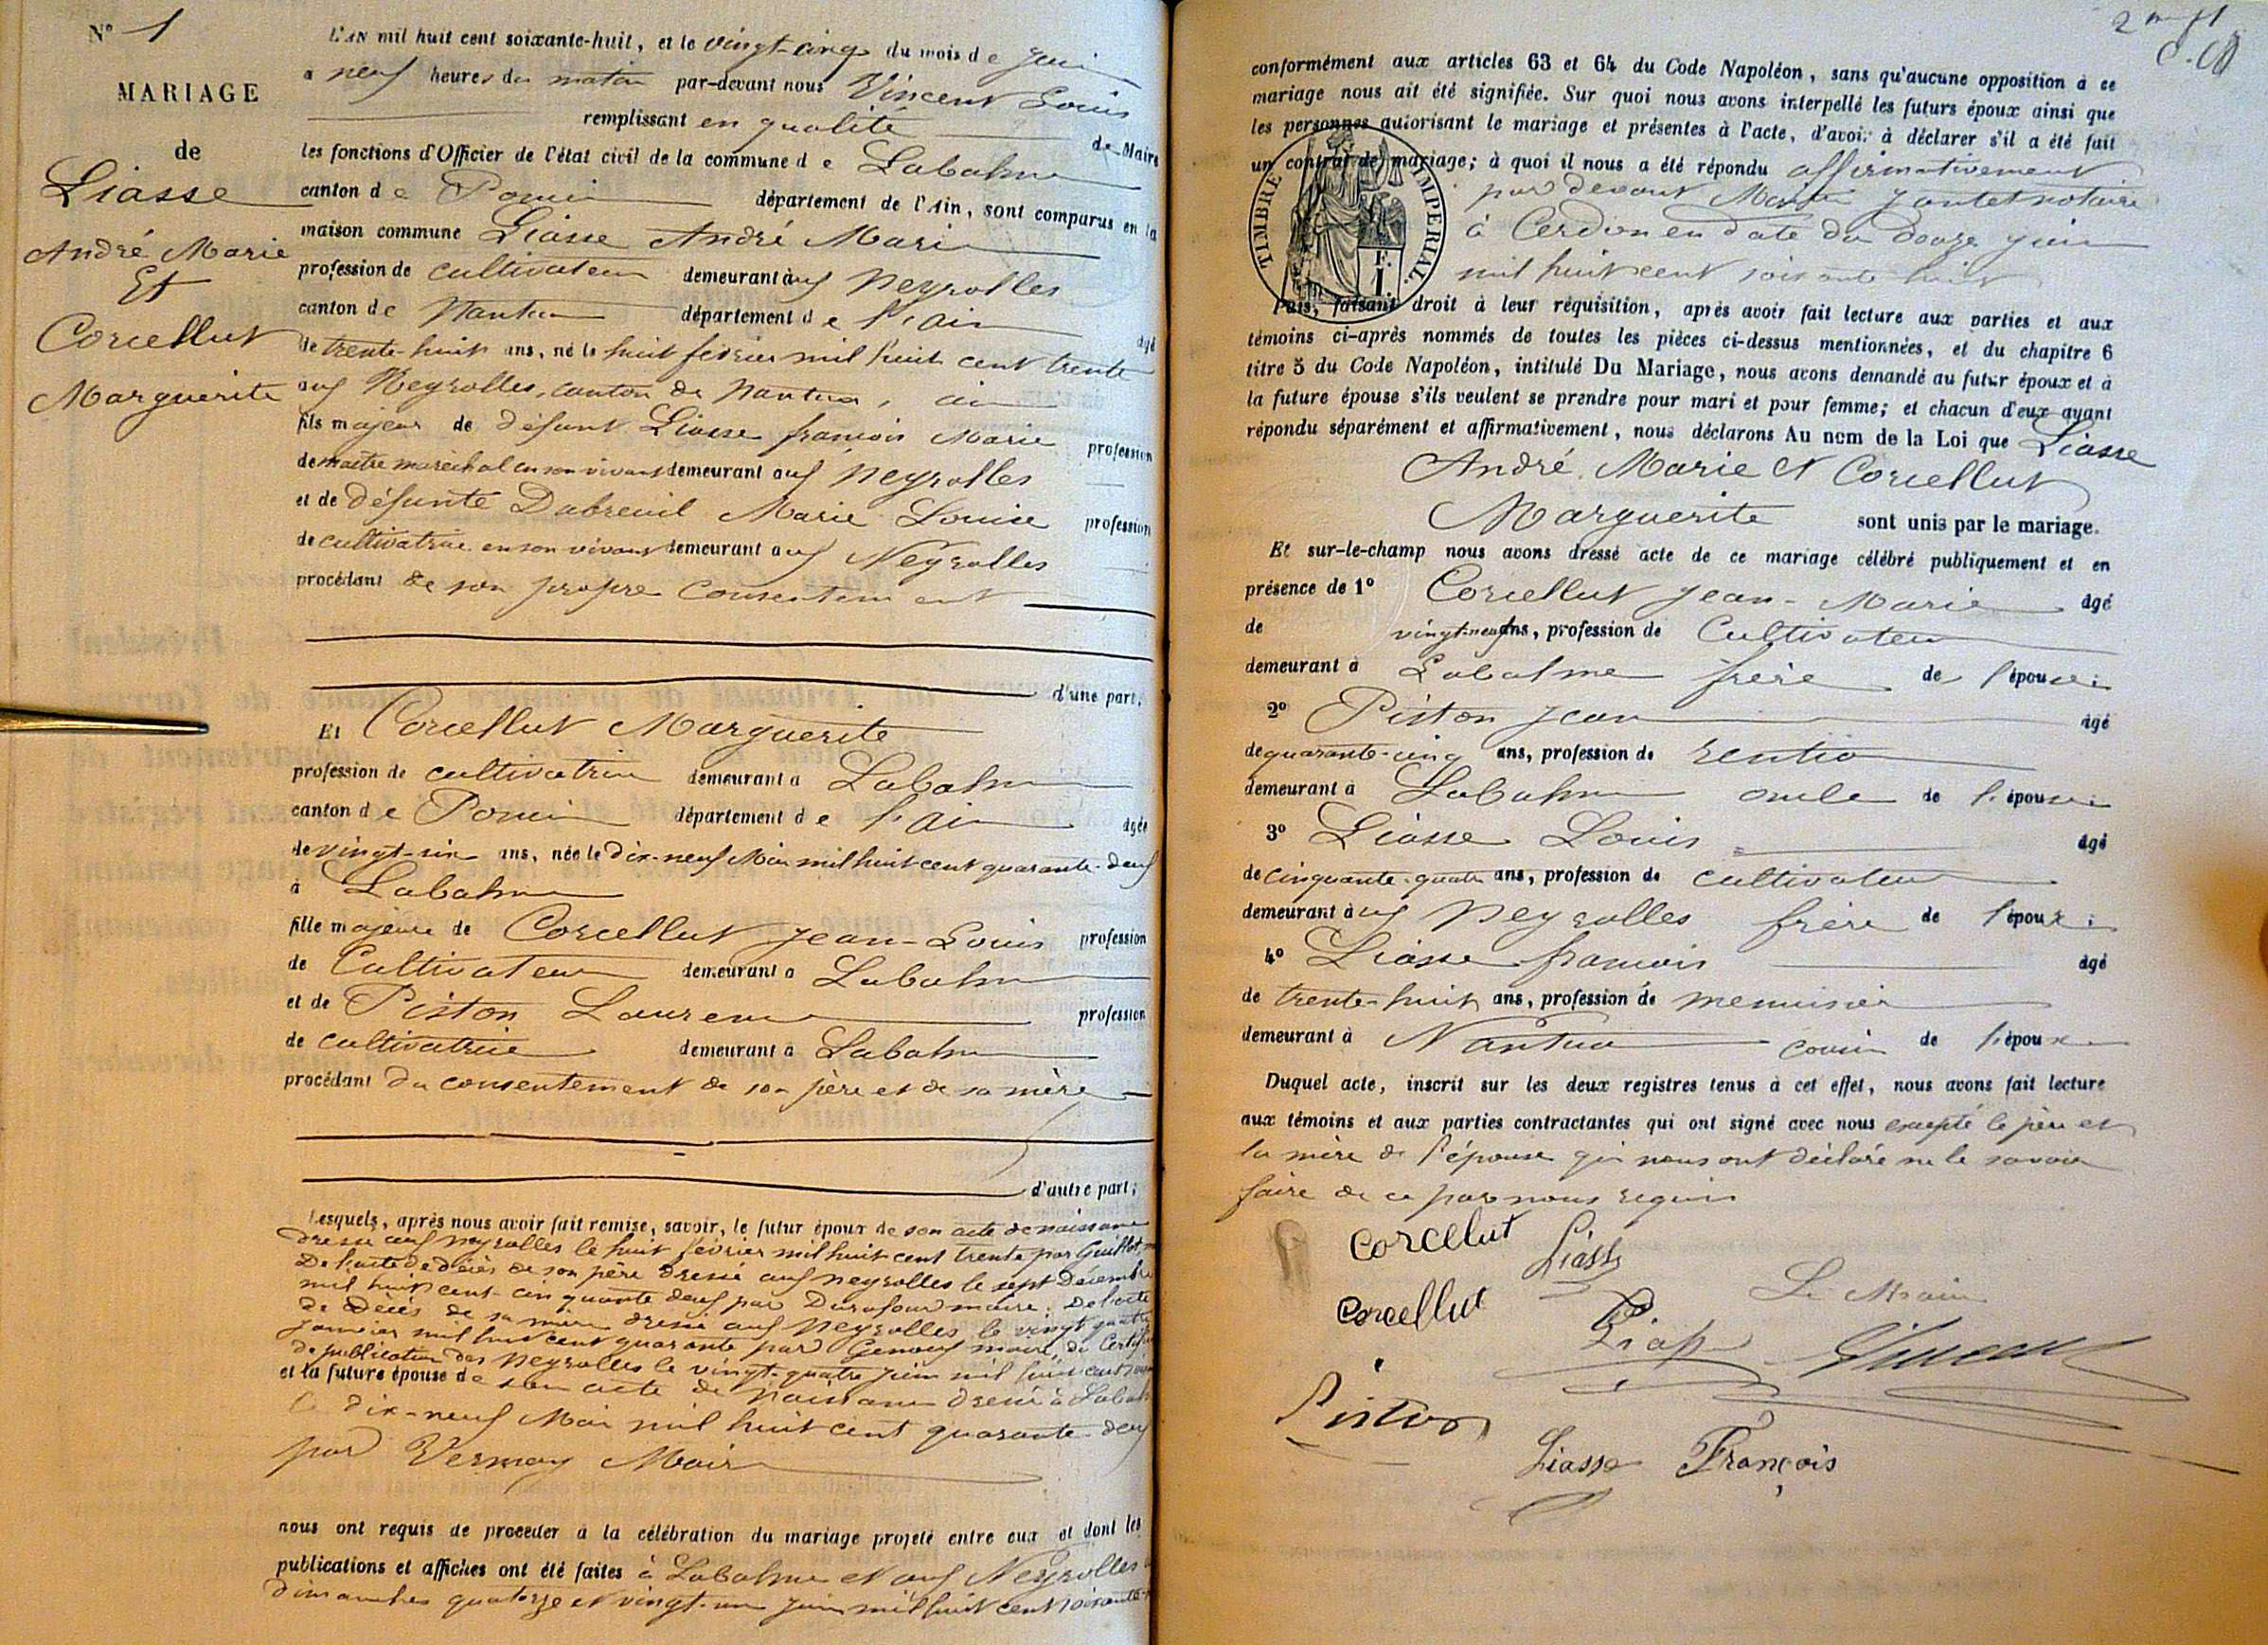 N° 1
MARIAGE
de
Liasse
André Marie
Et
Corcellut
Marguerite
L'AN mil huit cent soixante-huit, et le vingt-cinq du mois de juin
à neuf heures du matin par-devant nous Vincent Louis
remplissant en qualité de Maire
les fonctions d'Officier de l'état civil de la commune de Labalme
canton de Poncin département de l'Ain, sont comparus en la
maison commune Liasse André Marie
profession de cultivateur demeurant aux Neyrolles
canton de Nantua département de l'ain âgé
de trente-huit ans, né le huit février mil huit cent trente
aux Neyrolles, canton de Nantua, ain
fils majeur de défunt Liasse françois Marie profession
de maître maréchal en son vivant demeurant aux Neyrolles
et de défunte Dubreuil Marie Louise profession
de cultivatrice en son vivant demeurant aux Neyrolles
procédant de son propre consentement
d'une part,
Et Corcellut Marguerite
profession de cultivatrice demeurant à Labalme
canton de Poncin département de l'Ain âgée
de vingt-six ans, née le dix-neuf Mai mil huit cent quarante-deux
à Labalme
fille majeure de Corcellut Jean-Louis profession
de Cultivateur demeurant à Labalme
et de Piston Laurence profession
de cultivatrice demeurant à Labalme
procédant du consentement de son père et de sa mère
d'autre part;
Lesquels, après nous avoir fait remise, savoir, le futur époux de son acte de naissance
dressé aux Neyrolles le huit février mil huit cent trente par Guillot
De l'acte de décès de son père dressé aux Neyrolles le sept Décembre
mil huit cent cinquante deux par Durafour maire. De l'acte
de décès de sa mère dressé aux Neyrolles le vingt quatre
janvier mil huit cent quarante par maire, du Certificat
de publication des Neyrolles le vingt-quatre juin mil huit cent
et la future épouse de son acte de Naissance dressé à Labalme
le dix-neuf Mai mil huit cent quarante-deux
par Vernay Maire
nous ont requis de procéder à la célébration du mariage projeté entre eux et dont les
publications et affiches ont été faites à Labalme et aux Neyrolles
dimanches quatorze et vingt-un juin mil huit cent soixante
conformément aux articles 63 et 64 du Code Napoléon, sans qu'aucune opposition à ce
mariage nous ait été signifiée. Sur quoi nous avons interpellé les futurs époux ainsi que
les personnes autorisant le mariage et présentes à l'acte, d'avoir à déclarer s'il a été fait
un contrat de mariage; à quoi il nous a été répondu affirmativement
par devant Maître notaire
à Cerdon en date du douze juin
mil huit cent soixante huit
TIMBRE IMPÉRIAL
F.
1.
Puis, faisant droit à leur réquisition, après avoir fait lecture aux parties et aux
témoins ci-après nommés de toutes les pièces ci-dessus mentionnées, et du chapitre 6
titre 5 du Code Napoléon, intitulé Du Mariage, nous avons demandé au futur époux et à
la future épouse s'ils veulent se prendre pour mari et pour femme; et chacun d'eux ayant
répondu séparément et affirmativement, nous déclarons Au nom de la Loi que Liasse
André Marie et Corcellut
Marguerite sont unis par le mariage.
Et sur-le-champ nous avons dressé acte de ce mariage célébré publiquement et en
présence de 1° Corcellut Jean-Marie âgé
de vingt-neuf ans, profession de Cultivateur
demeurant à Labalme frère de l'épouse;
2° Piston Jean âgé
de quarante-cinq ans, profession de rentier
demeurant à Labalme oncle de l'épouse;
3° Liasse Louis âgé
de cinquante-quatre ans, profession de cultivateur
demeurant aux Neyrolles frère de l'époux;
4° Liasse françois âgé
de trente-huit ans, profession de menuisier
demeurant à Nantua cousin de l'époux
Duquel acte, inscrit sur les deux registres tenus à cet effet, nous avons fait lecture
aux témoins et aux parties contractantes qui ont signé avec nous excepté le père et
la mère de l'épouse qui nous ont déclaré ne le savoir
faire de ce par nous requis
Corcelut
Liasse
Corcellut
Le Maire
Vincent
Piston
Liasse François